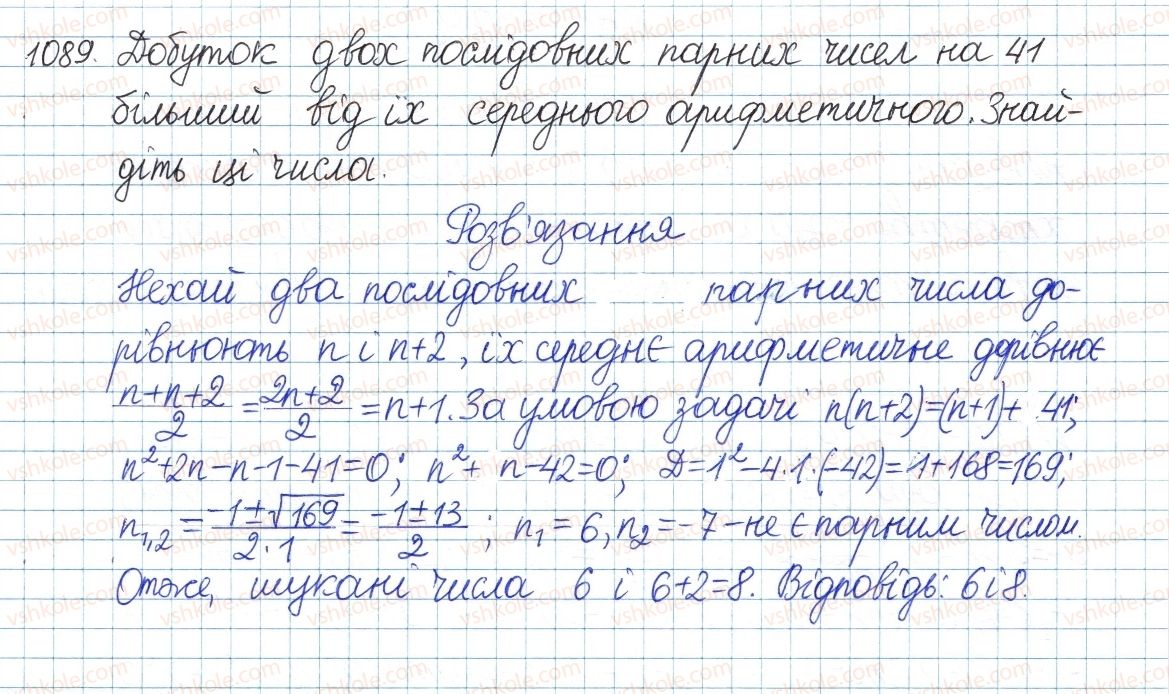 1089. Добуток двох послідовних парних чисел на 41
більший від їх середнього арифметичного. Знай-
діть ці числа.
Розв'язання
Нехай два послідовних парних числа до-
рівнюють n і n+2, їх середнє арифметичне дорівнює
(n+n+2)/2 = (2n+2)/2 = n+1. За умовою задачі n(n+2)=(n+1)+ 41;
n²+2n-n-1-41=0; n²+ n-42=0; D=1²-4·1·(-42)=1+168=169;
n₁,₂ = (-1±√169)/(2·1) = (-1±13)/2 ; n₁=6, n₂=-7 -не є парним числом.
Отже, шукані числа 6 і 6+2=8. Відповідь: 6 і 8.
vshkole.com